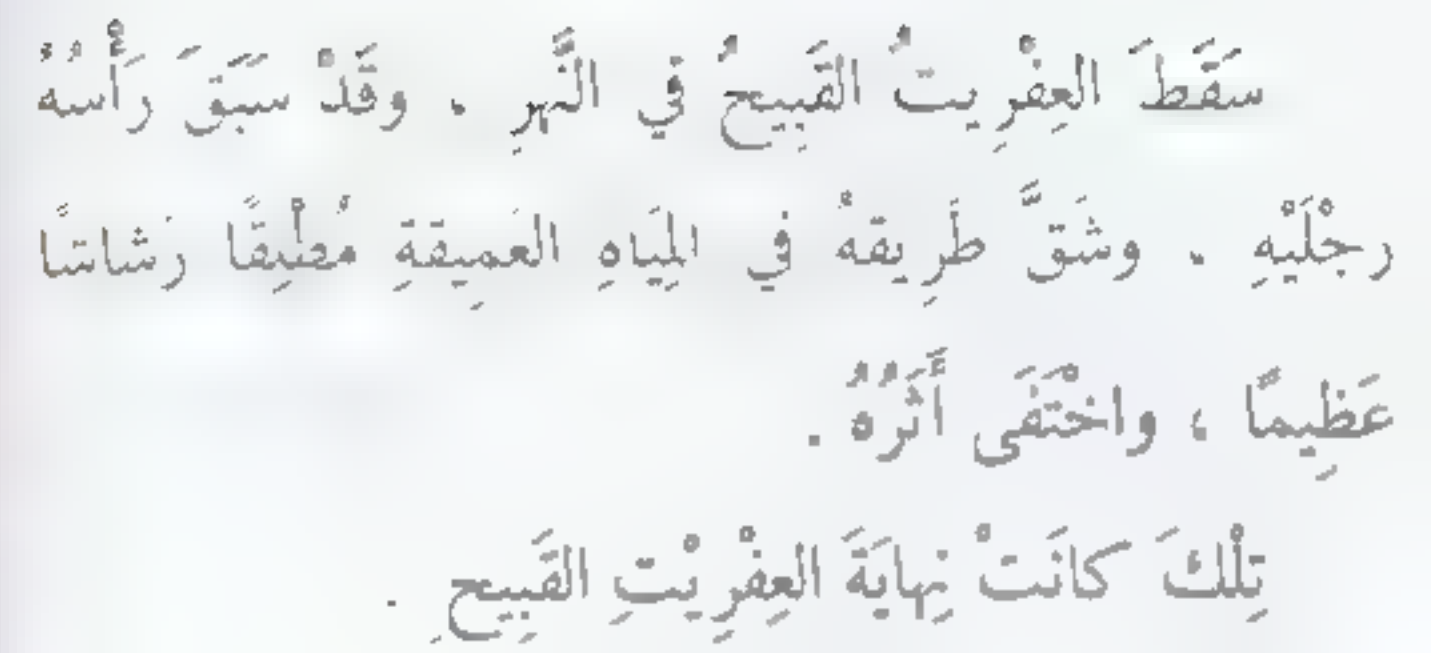 سَقَطَ العِفْرِيتُ القَبِيحُ في النَّهرِ . وقَدْ سَبَقَ رَأْسُهُ
رِجْلَيْهِ . وشَقَّ طَرِيقَهُ في المِيَاهِ العَمِيقةِ مُطْلِقًا رَشاشًا
عَظِيمًا ، واخْتَفَى أَثَرُهُ .
تِلْكَ كانَتْ نِهايَةَ العِفْرِيْتِ القَبِيحِ .